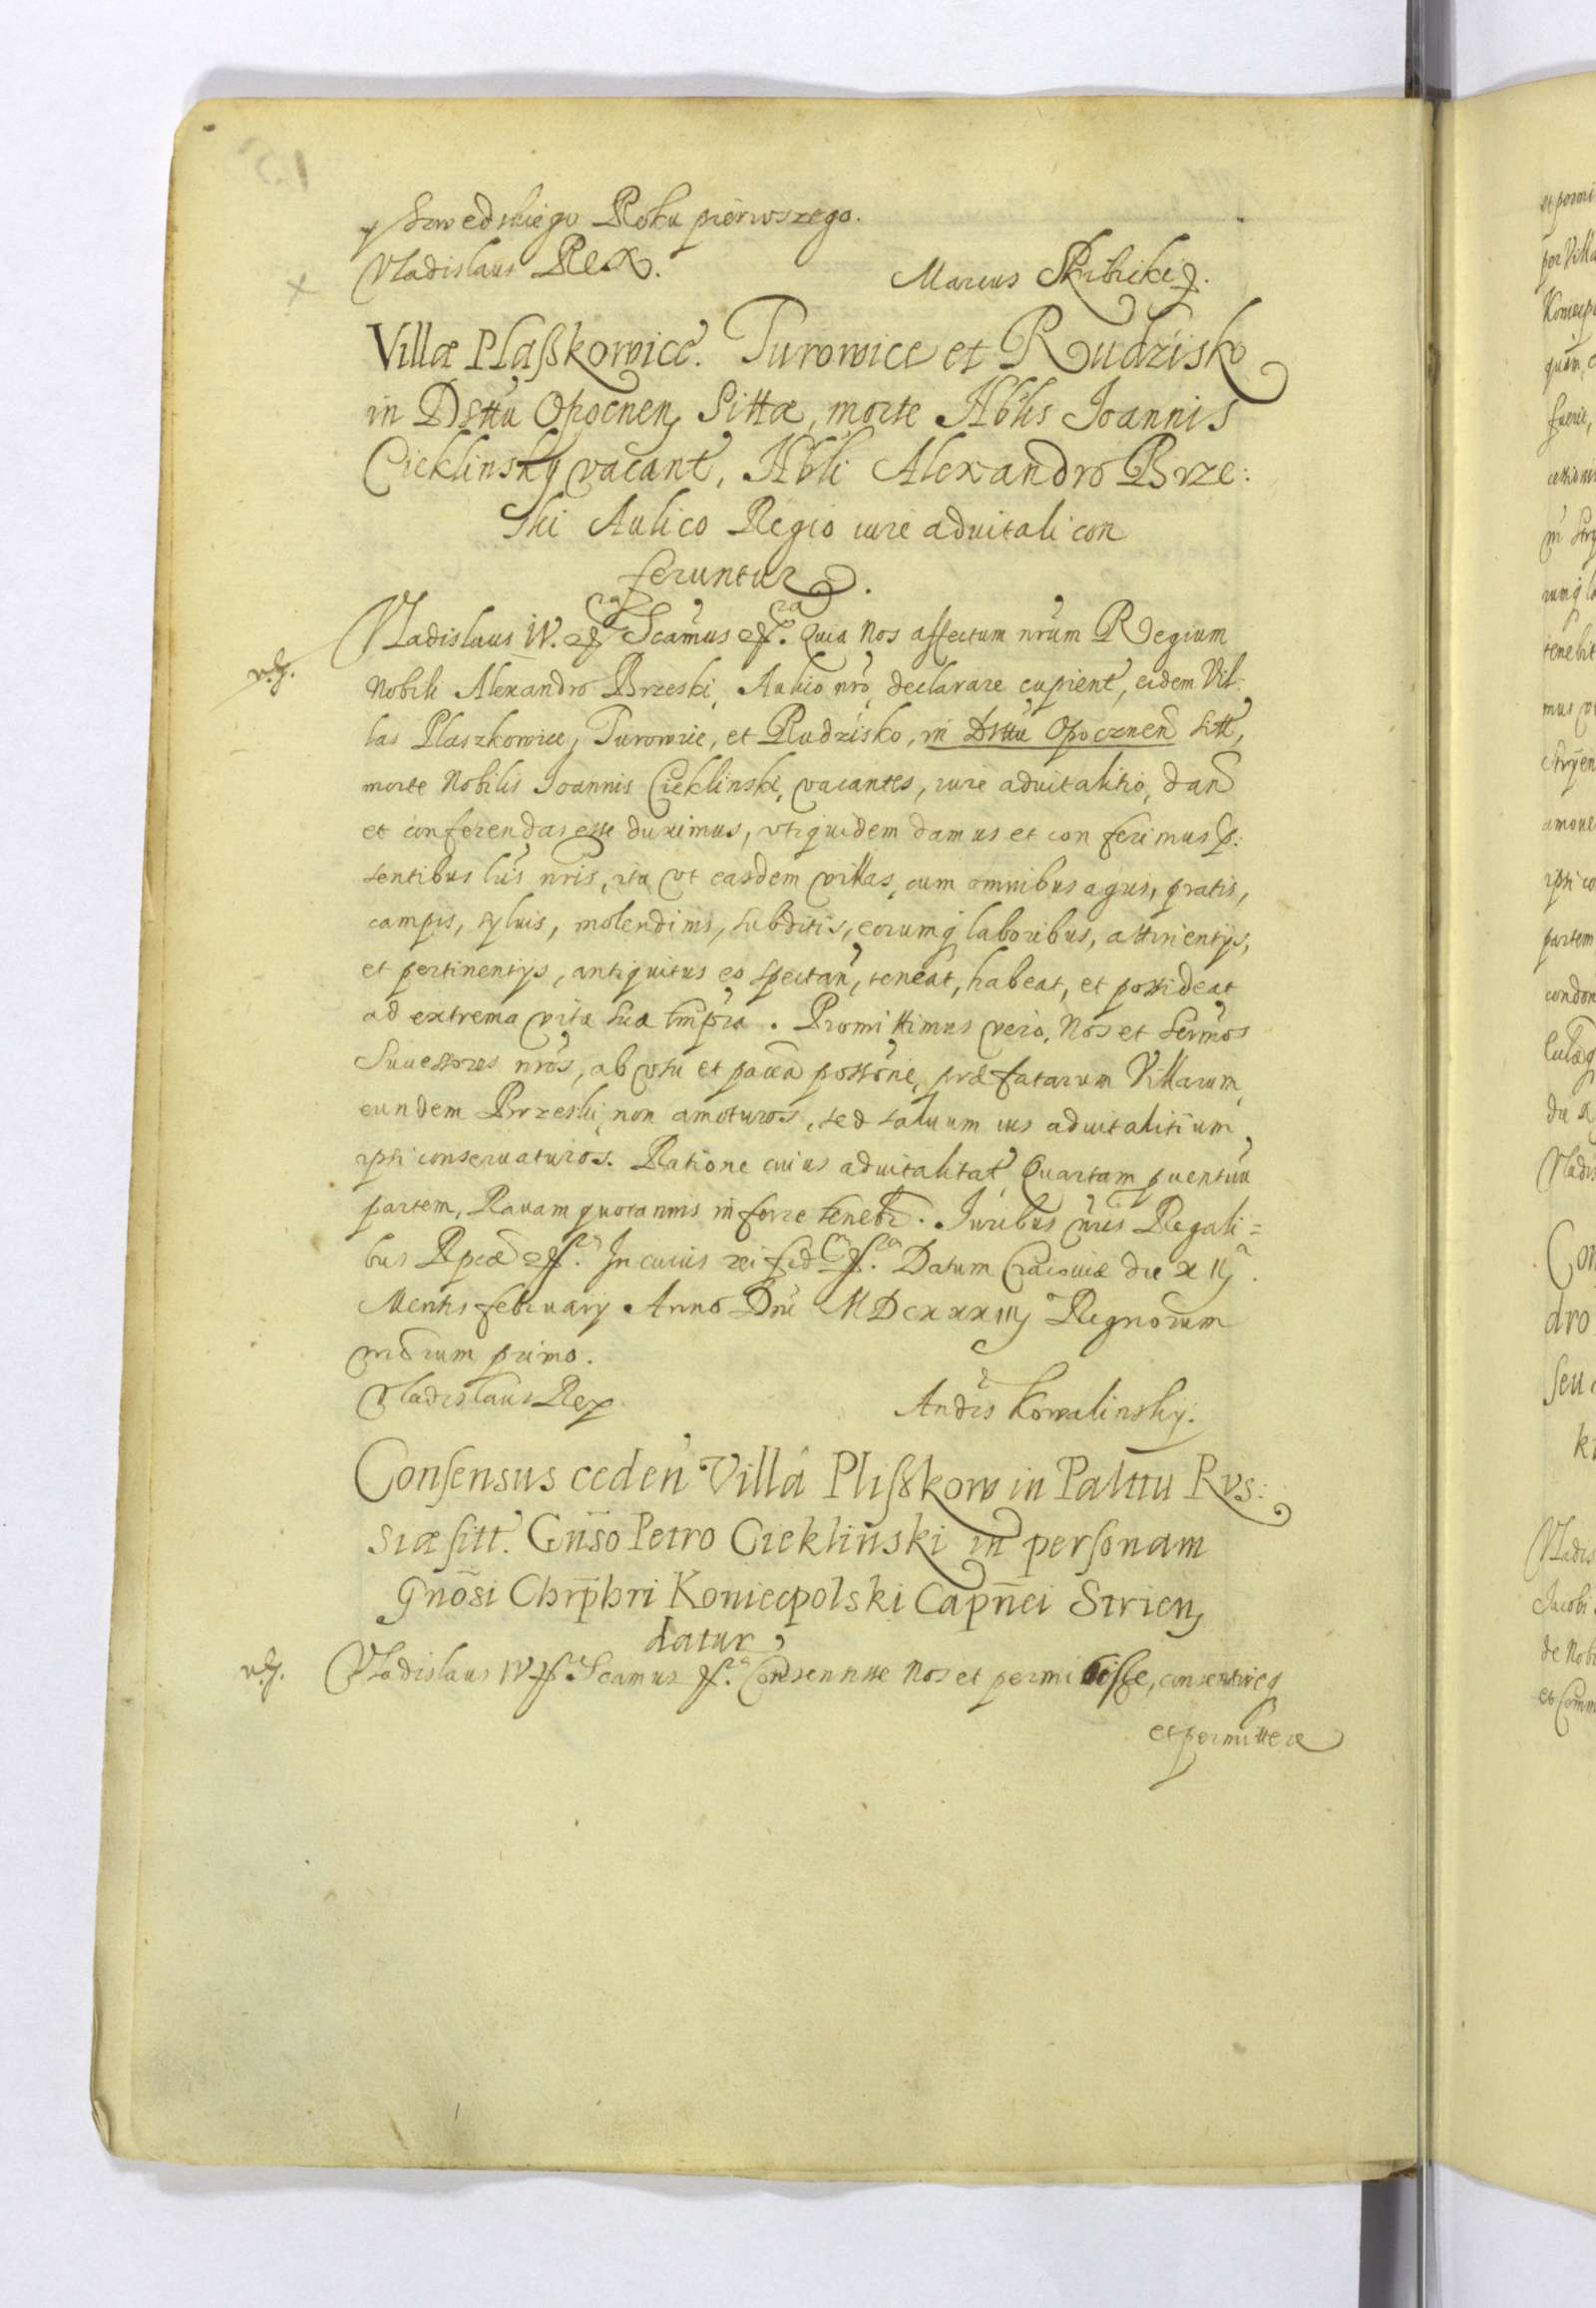 y Szwedskiego Roku pierwszego.
Vladislaus Rex.
Marcus Skibicki
Villæ Plaßkowice. Turowice et Rudzisko
in Dsttu Opocnen, Sittæ, morte Nblis Joannis
Cieklinsky vacant, Nbli Alexandro Brze:
ski Aulico Regio iure aduitali con
feruntur.
Vladislaus IV. Scamus Quia Nos affectum nrum Regium
Nobili Alexandro Brzeski, Aulico nro, declarare cupient, eidem Vil:
las Plaszkowice, Turowice, et Rudzisko, in Dsttu Opocznen sitt,
morte Nobilis Joannis Cieklinski, vacantes, iure aduitalitio, dan
et conferendas esse duximus, vtiquidem damus et conferimus p:
sentibus lris nris, ita vt easdem villas, cum omnibus agris, pratis,
campis, syluis, molendinis, subditis, eorumq laboribus, attinentijs,
et pertinentijs, antiquitus eo spectan, teneat, habeat, et possideat
ad extrema vitæ suæ tmpra. Promittimus vero, Nos et Sermos
Successores nros, ab vsu et pacca possone, præfatarum Villarum,
eundem Brzeski, non amoturos, sed saluum ius aduitalitium
ipsi conseruaturos. Ratione cuius aduitalitat, Quartam puentuu
partem, Rauam quotannis inferre tenebr. Iuribus nris Regali=
bus Rpcæ In cuius rei fid Datum Cracouiæ die x iij.
Mensis february Anno Dni MDCxxxiij Regnorum
nrorum primo.
Vladislaus Rex
Andrs Kowalinsky.
Consensus ceden Villa Plißkow in Palttu Rvs:
siæ sitt. Gnso Petro Cieklinski in personam
Gnosi Chrphri Koniecpolski Capnei Strien,
datur,
Vladislaus IV Scamus Consensisse Nos et permisisse, consentireq
et permittere